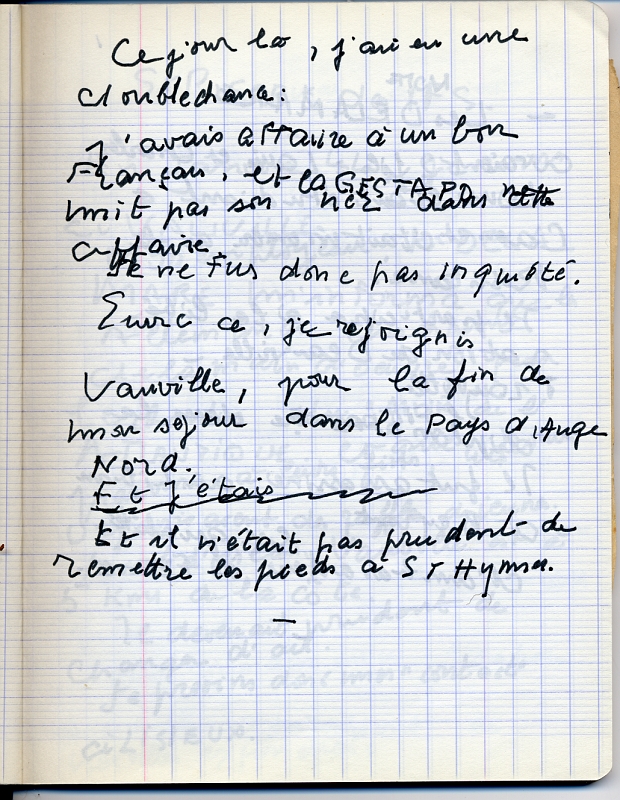 Ce jour là, j'ai eu une
double chance:
J'avais affaire à un bon
Français, et la GESTAPO
mit pas son nez dans cette
affaire.
Je ne fus donc pas inquiété.
ce, je rejoignis
Vauville, pour la fin de
mon sejour dans le Pays d'Auge
Nord.
Et J'étais
Et il n'était pas prudent de
remettre les pieds à ST Hymer.
—